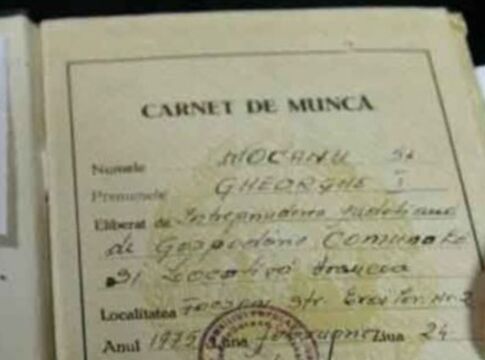 CARNET DE MUNCĂ
Numele MOCANU
Prenumele GHEORGHE I
Eliberat de Intreprinderea Judeteana
de Gospodarie Comunala
Si Locativă Vrancea
Localitatea Focsani str.
Anul 1975 Luna Ziua 24